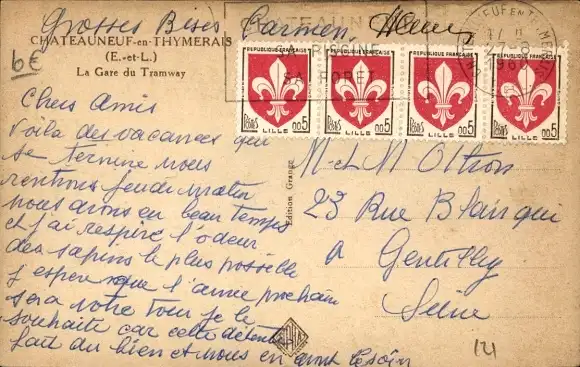 Grosses Bises Carmen, Henri
CHATEAUNEUF-en-THYMERAIS
(E.-et-L.)
La Gare du Tramway
6€
CHATEAUNEUF
SA PISCINE
SA FORET
REPUBLIQUE FRANÇAISE REPUBLIQUE FRANÇAISE REPUBLIQUE FRANÇAISE REPUBLIQUE FRANÇAISE
POSTES LILLE 0.05 POSTES LILLE 0.05 POSTES LILLE 0.05 POSTES LILLE 0.05
Chers Amis
Voila des vacances qui
se termine nous
rentrons jeudi matin
nous avons eu beau temps
et j'ai respiré l'odeur
des sapins le plus possible
j'espere que l'année prochain
sera votre tour je le
souhaite car cette détente
fait du bien et nous en avons besoin
Edition Grange
M - et M Olhon
23 Rue Blanqui
a Gentilly
Seine
121